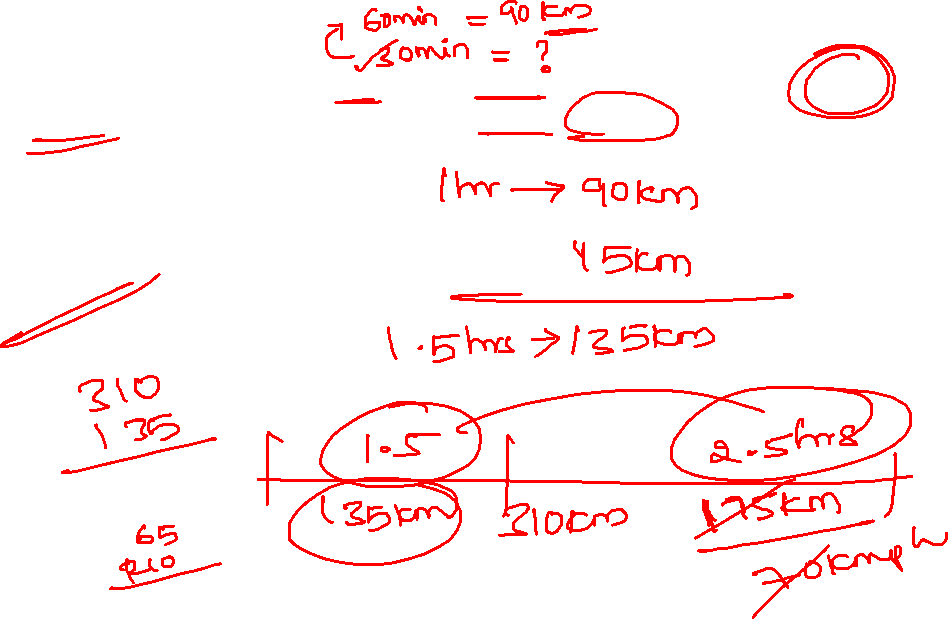 60min = 90km
30min = ?
1hr → 90km
45km
1.5hrs → 135km
310
135
1.5
2.5hrs
135km
310km
175km
70kmph
65